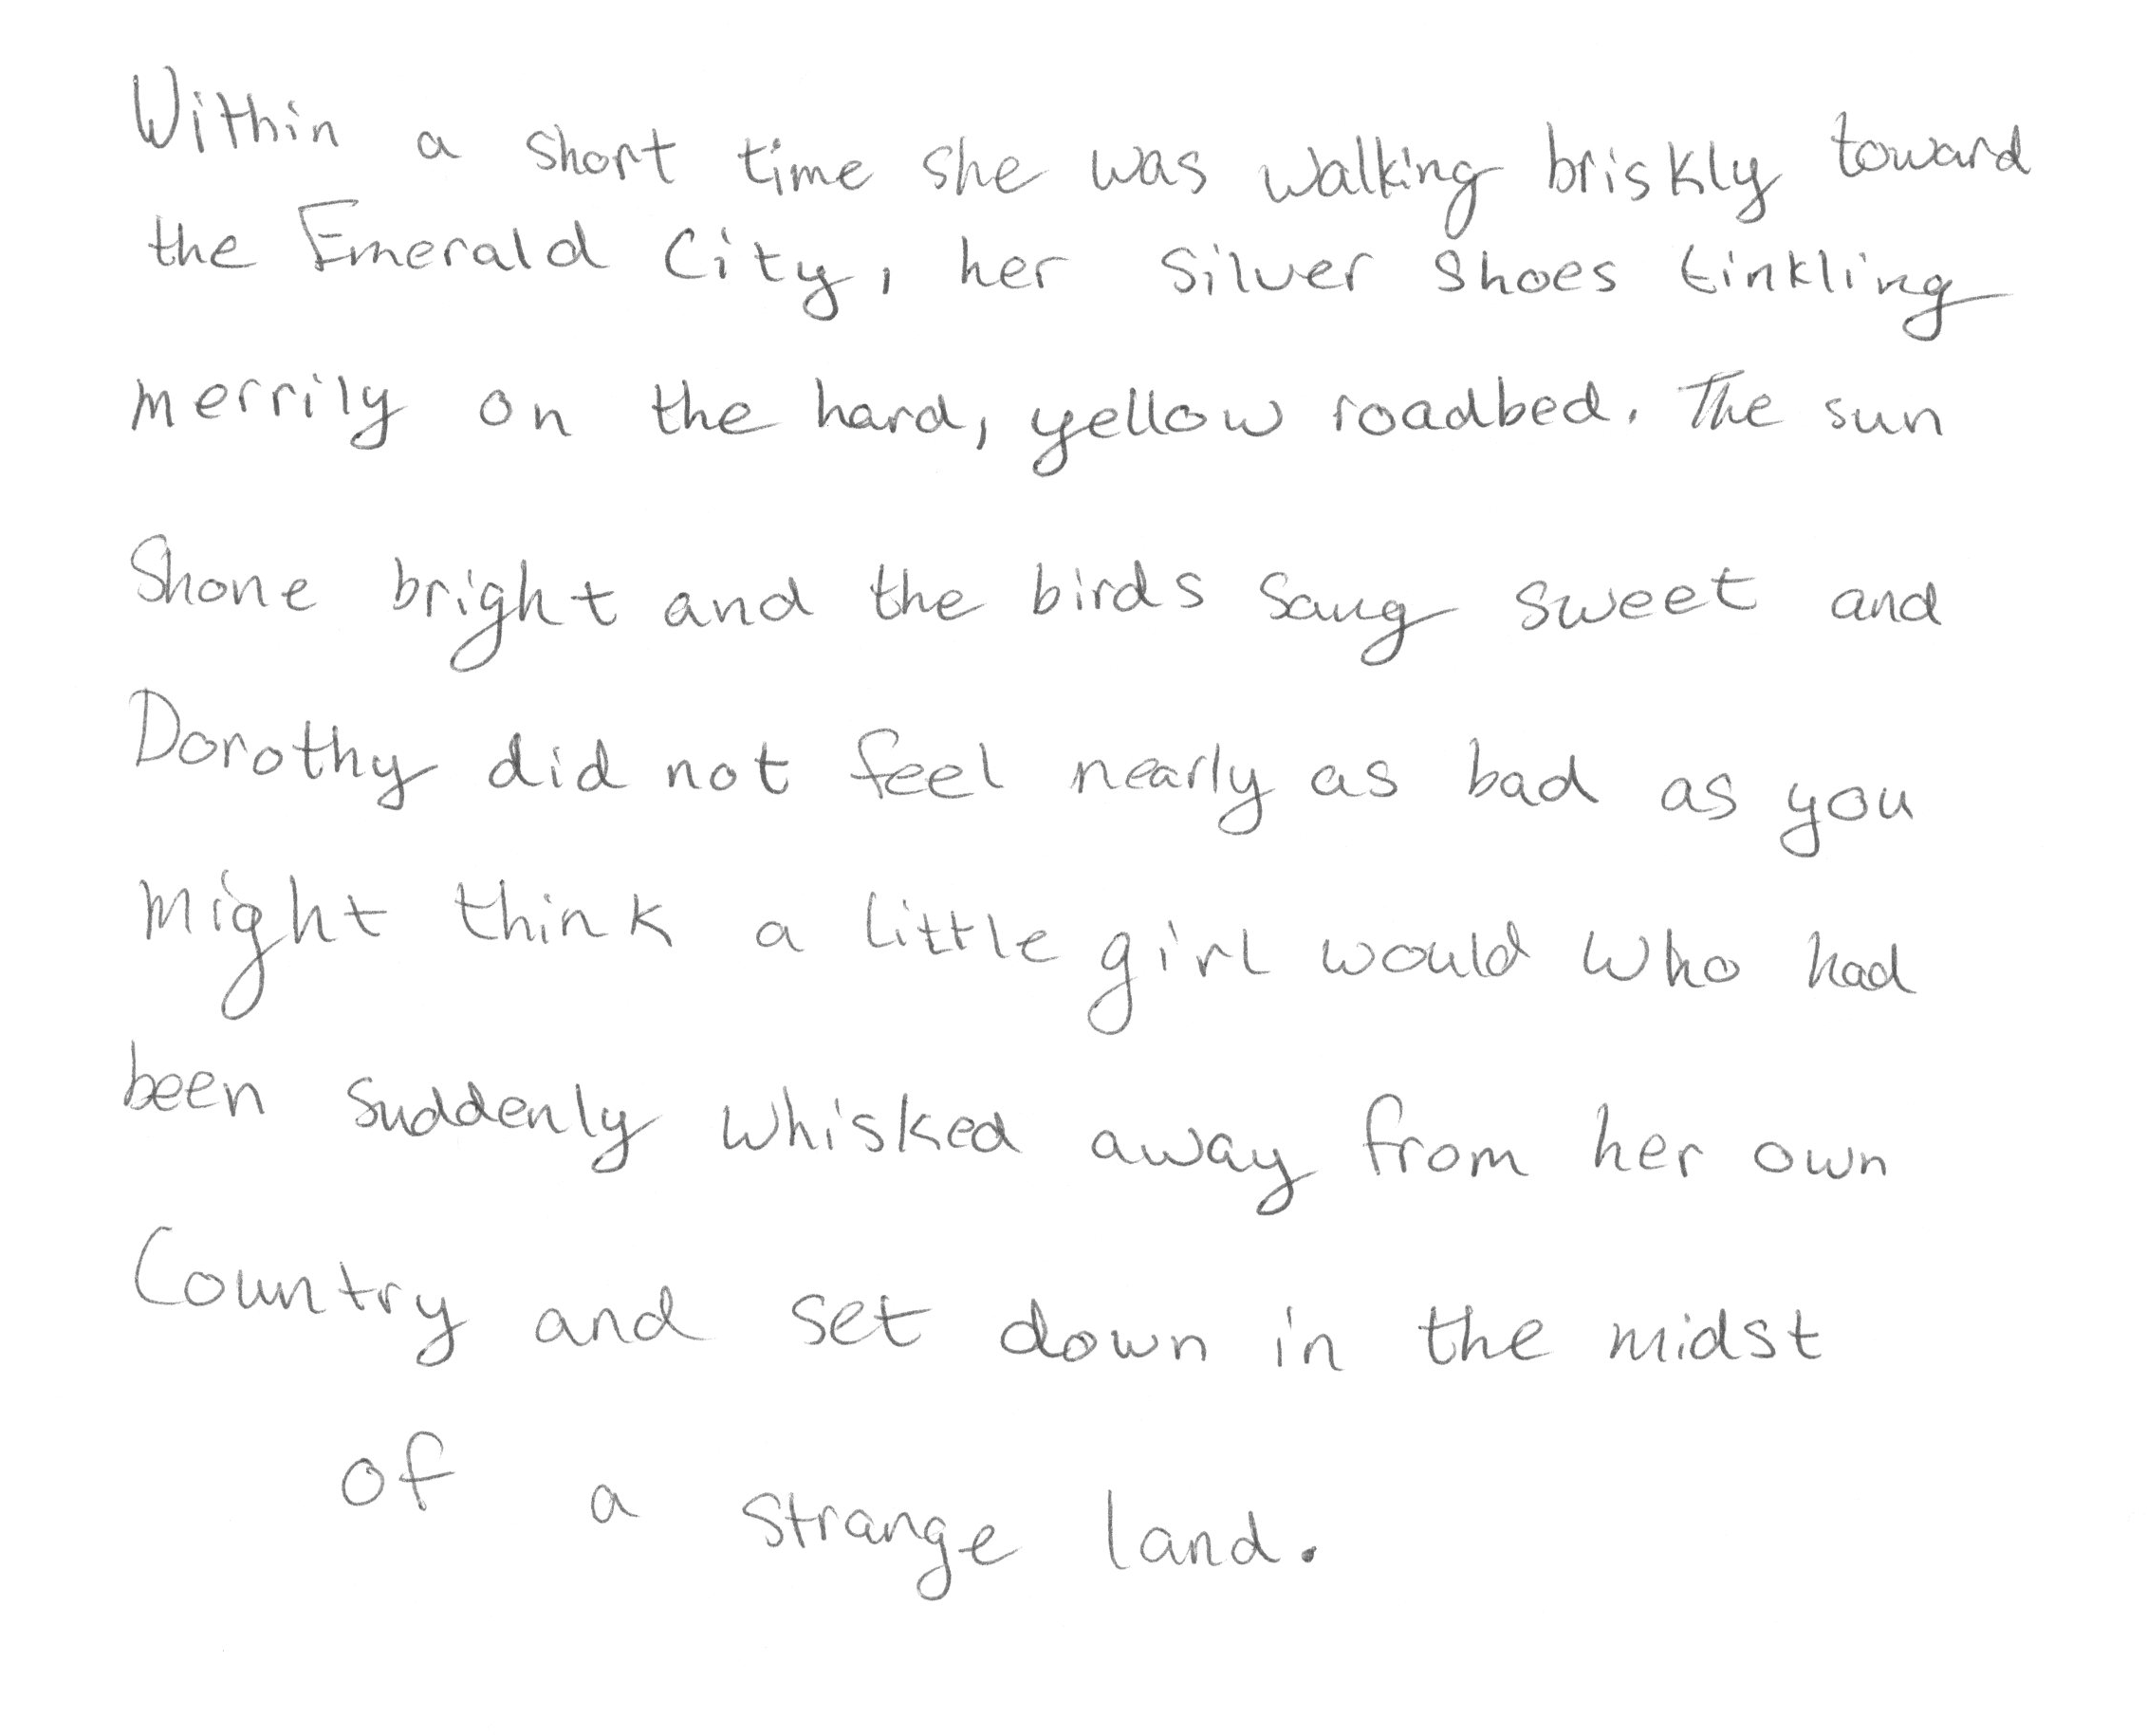 Within a short time she was walking briskly toward
the Emerald City, her Silver Shoes tinkling
merrily on the hard, yellow roadbed. The sun
Shone bright and the birds sang sweet and
Dorothy did not feel nearly as bad as you
Might think a little girl would who had
been suddenly whisked away from her own
Country and set down in the midst
of a strange land.